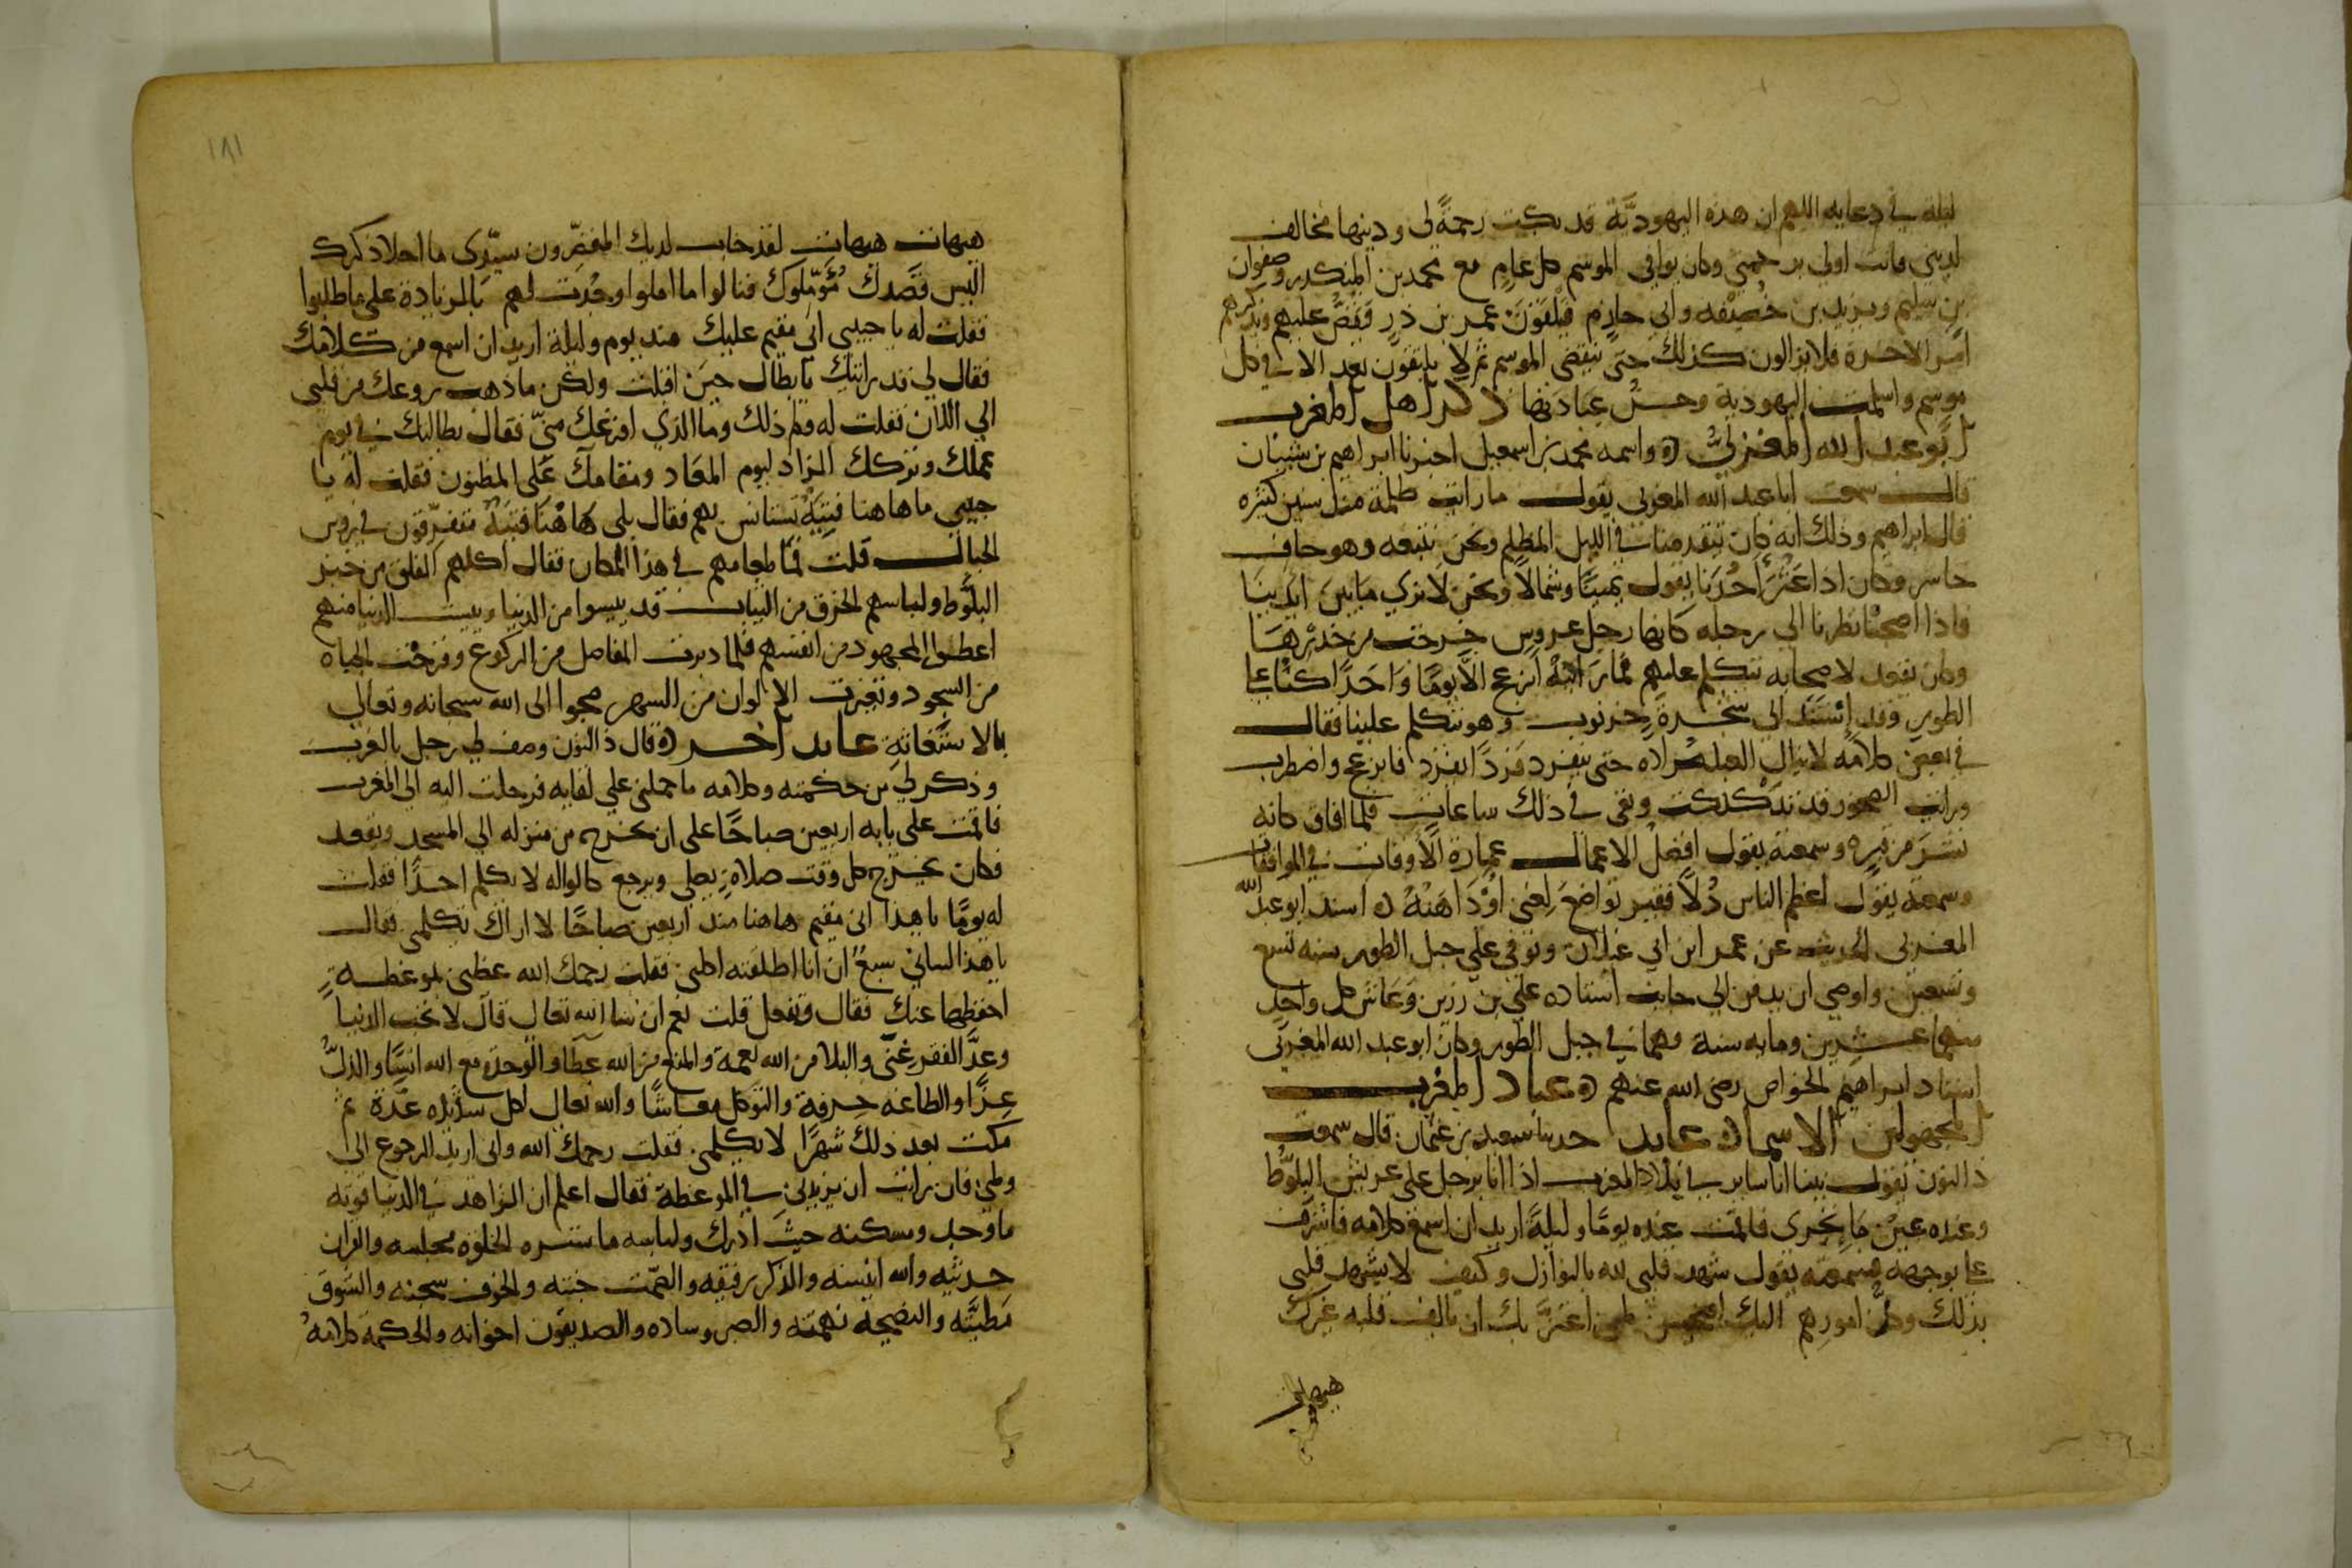 ليلة في دعايه اللهم ان هذه اليهوديَّة قد بكيت رحمةً لي ودينها مخالف
لديني فانت اولي برحمتي وكان يوافي الموسم كل عام مع محمد بن المنكدر وصفوان
بن سليم ويزيد بن خصيفه وابي حازم فيلقون عمر بن ذر فيقص عليهم ويذكرهم
امر الاخرة فلا يزالون كذلك حتى ينقضي الموسم ثم لا يلتقون بعد الا في كل
موسم واسلمت اليهودية وحسن عبادتها ذكر اهل المغرب
ابو عبد الله المغربيُّ ه واسمه محمد بن اسمعيل اخبرنا ابراهيم بن شيبان
قال سمعت ابا عبد الله المغربي يقول ما رايت ظلمة منذ سنين كثيره
قال ابراهيم وذلك انه كان يتقدمنا في الليل المظلم ونحن نتبعه وهو حاف
حاسر وكان اذا عثر احدنا يقول يمينًا وشمالًا ونحن لا نري ما بين ايدينا
فاذا اصبحنا نظرنا الي رجله كانها رجل عروس خرجت من خدرها
وكان يقعد لاصحابه يتكلم عليهم فما رايته انزعج الا يومًا واحدًا كنا علي
الطور وقد استند الي شجرة خرنوب وهو يتكلم علينا فقال
في بعض كلامه لا ينال العبد مراده حتى ينفرد فردًا بفرد فانزعج واضطرب
ورايت الصخور قد تدكدكت وبقي في ذلك ساعات فلما افاق كانه
نشر من قبره وسمعته يقول افضل الاعمال عمارة الاوقات في الموافقات
وسمعته يقول اعظم الناس ذلًا فقير تواضع لغني او داهنه ه اسند ابو عبد الله
المغربي الحديث عن عمر ابن ابي غيلان وتوفي علي جبل الطور سنه تسع
وتسعين واوصي ان يدفن الي جانب استاده علي بن رزين وعاش كل واحد
منهما عشرين ومايه سنة وهما في جبل الطور وكان ابو عبد الله المغربي
استاد ابراهيم الخواص رضى الله عنهم ه عباد المغرب
المجهولين الاسماء عابد حدثنا سعيد بن عثمان قال سمعت
ذا النون يقول بينا انا ساير في بلاد المغرب اذا انا برجل علي عريش البلُّوط
وعنده عين ما تجري فاقمت عنده يومًا وليلةً اريد ان اسمع كلامه فاشرف
علي بوجهه فسمعته يقول شهد قلبي لله بالنوازل وكيف لا يشهد قلبي
بذلك وكل امورهم اليك لمن اغترَّ بك ان يالف قلبه غيرك
هيهات
١٨١
هيهات هيهات لقد خاب لديك المقصّرون سيّدى ما احلا ذكرك
اليس قصدك مؤمّلوك فنالوا ما املوا وجُدت لهم بالزيادة على ما طلبوا
فقلت له يا حبيبي اني مقيم عليك منذ يوم وليلة اريد ان اسمع من كلامك
فقال لي قد رايتك يا بطال حين اقبلت ولكن ما ذهب روعك من قلبي
الي الان فقلت له ولم ذلك وما الذي افزعك منيّ فقال بطالتك في يوم
عملك وتركك الزاد ليوم المعاد ومقامك على المظنون فقلت له يا
حبيبي ما هاهنا فتيَة تستانس بهم فقال بلى هاهنا فتية متفرّقون في روس
الجبال قلت فما طعامهم في هذا المكان فقال اكلهم الفلق من خبز
البلُّوط ولباسهم الخرق من الثياب قد ييسوا من الدنيا وييست الدنيا منهم
اعطوا المجهود من انفسهم فلما دبرت المفاصل من الركوع وقرحت الجباه
من السجود وتغيرت الالوان من السهر ضجوا الى الله سبحانه وتعالي
بالاستغاثةِ عابد اخر ه قال ذا النون وصف لي رجل بالمغرب
وذكر لي من حكمته وكلامه ما حملني علي لقايه فرحلت اليه الى المغرب
فاقمت على بابه اربعين صباحًا على ان يخرج من منزله الي المسجد ويقعد
فكان يخرج كل وقت صلاةٍ يصلي ويرجع كالواله لا يكلم احدًا فقلت
له يومًا يا هذا اني مقيم هاهنا منذ اربعين صباحًا لا اراك تكلمنى فقال
يا هذا لساني سبعٌ ان انا اطلقته اكلني فقلت رحمك الله عظني بموعظةٍ
احفظها عنك فقال وتفعل قلت نعم ان شا الله تعالي قال لا تحب الدنيا
وعدَّ الفقر غنًى والبلا من الله نعمة والمنع من الله عطا والوحدة مع الله انسًا والذلَّ
عزًا والطاعه حرفة والتوكل معاشًا والله تعالي لكل شديده عدّة ثم
مكث بعد ذلك شهرًا لا يكلمني فقلت رحمك الله واني اريد الرجوع الى
وطني فان رايت ان تزيدني في الموعظة فقال اعلم ان الزاهد في الدنيا قوته
ما وجد ومسكنه حيث ادرك ولباسه ما ستره الخلوة مجلسه والقران
حديثه والله انيسه والذكر رفيقه والصّمت جنته والخوف سجنه والشوق
مطيَّته والنصيحة نهمته والصبر وساده والصديقون اخوانه والحكمه كلامهُ